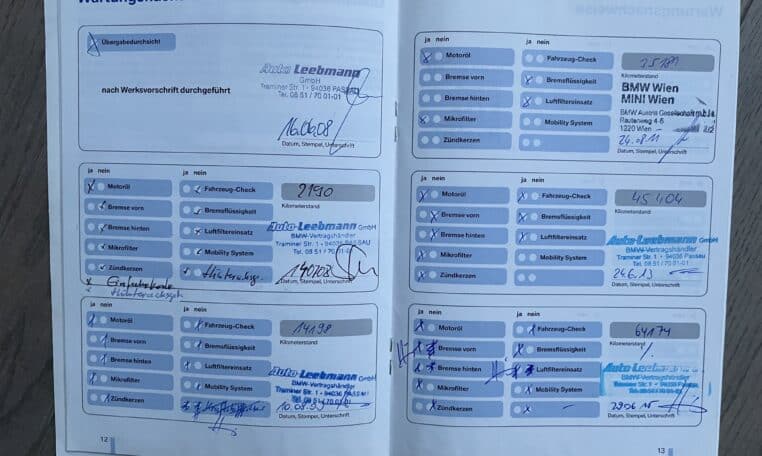 Übergabedurchsicht
nach Werksvorschrift durchgeführt
Auto Leebmann
GmbH
Traminer Str. 1 · 94036 PASSAU
Tel. 08 51 / 70 01-01
16.06.08
Datum, Stempel, Unterschrift
ja nein
Motoröl
Fahrzeug-Check
2190
Bremse vorn
Bremsflüssigkeit
Kilometerstand
Bremse hinten
Luftfiltereinsatz
Auto Leebmann GmbH
BMW-Vertragshändler
Mikrofilter
Mobility System
Traminer Str. 1 · 94036 PASSAU
Tel. 08 51 / 70 01-01
Zündkerzen
140708
Datum, Stempel, Unterschrift
ja nein
ja nein
Motoröl
Fahrzeug-Check
14198
Bremse vorn
Bremsflüssigkeit
Kilometerstand
Bremse hinten
Luftfiltereinsatz
Auto Leebmann GmbH
BMW-Vertragshändler
Mikrofilter
Mobility System
Traminer Str. 1 · 94036 PASSAU
Tel. 08 51 / 70 01-01
Zündkerzen
Datum, Stempel, Unterschrift
12
ja nein
ja nein
Motoröl
Fahrzeug-Check
Bremse vorn
Bremsflüssigkeit
Kilometerstand
Bremse hinten
Luftfiltereinsatz
BMW Wien
MINI Wien
Mikrofilter
Mobility System
Rautenweg 4-6
1220 Wien
Zündkerzen
24.08.11
Datum, Stempel, Unterschrift
ja nein
ja nein
Motoröl
Fahrzeug-Check
45404
Bremse vorn
Bremsflüssigkeit
Kilometerstand
Bremse hinten
Luftfiltereinsatz
Auto Leebmann GmbH
BMW-Vertragshändler
Mikrofilter
Mobility System
Traminer Str. 1 · 94036 Passau
Tel. 08 51 / 70 01-01
Zündkerzen
24.6.13
Datum, Stempel, Unterschrift
ja nein
ja nein
Motoröl
Fahrzeug-Check
64174
Bremse vorn
Bremsflüssigkeit
Kilometerstand
Bremse hinten
Luftfiltereinsatz
Auto Leebmann GmbH
BMW-Vertragshändler
Mikrofilter
Mobility System
Zündkerzen
Datum, Stempel, Unterschrift
13